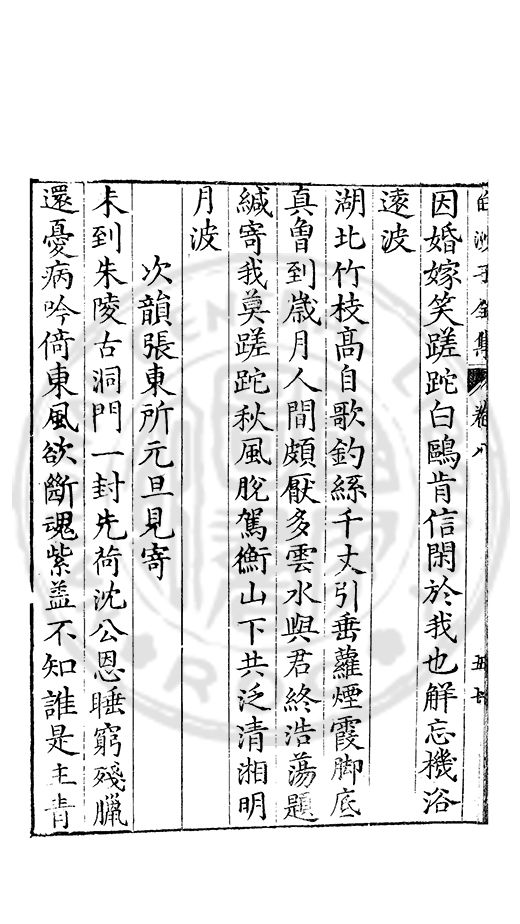 白沙子全集 卷八 五七
因婚嫁笑蹉跎白鷗肯信閑於我也解忘機浴
遠波
湖北竹枝髙自歌釣絲千丈引垂蘿煙霞脚底
真曾到歲月人間頗厭多雲水與君終浩蕩題
緘寄我莫蹉跎秋風脫駕衡山下共泛清湘明
月波
次韻張東所元旦見寄
未到朱陵古洞門一封先荷沈公恩睡窮殘臘
還憂病吟倚東風欲斷魂紫蓋不知誰是主青